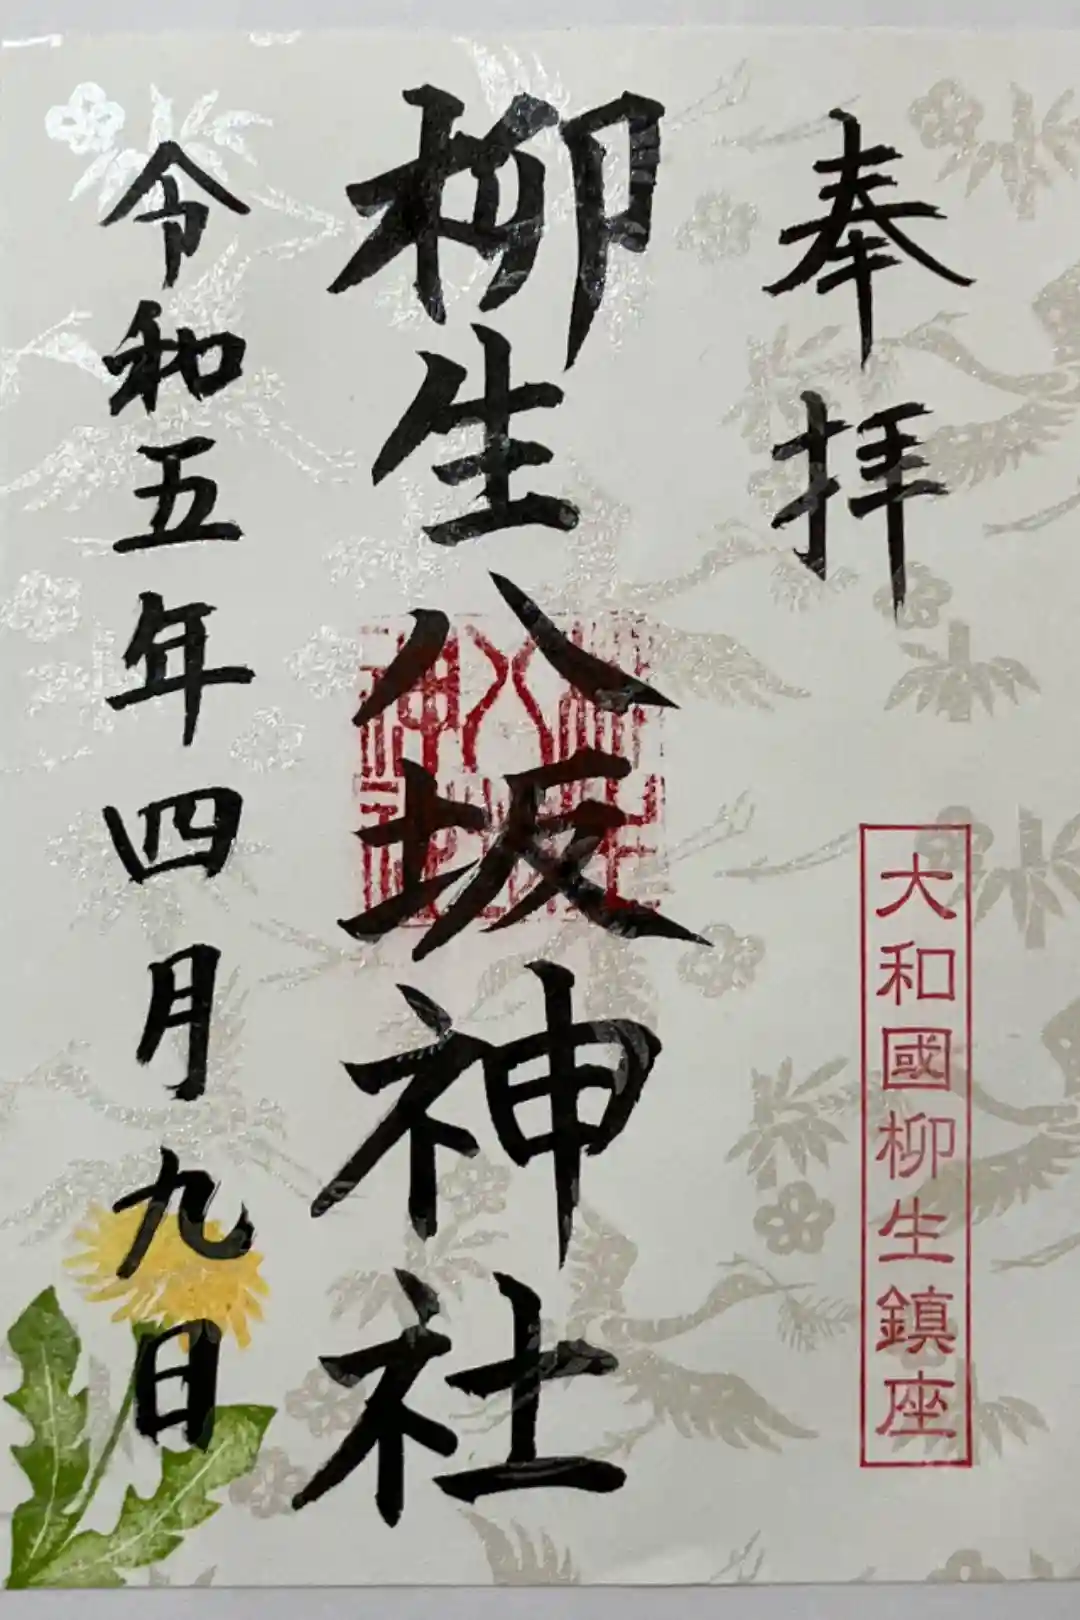 奉拝
大和國柳生鎮座
柳生八坂神社
令和五年四月九日